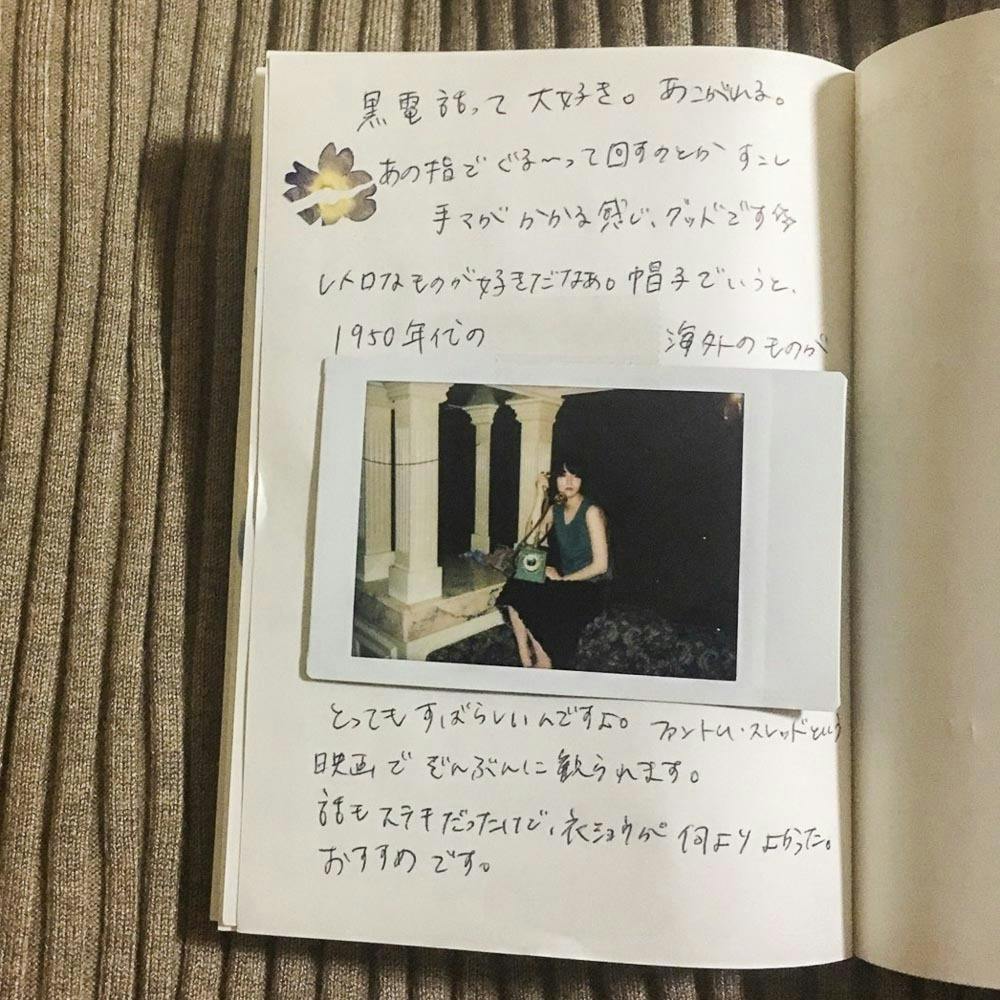 黒電話って大好き。あこがれる。
あの指でぐる〜って回すのとかすこし
手マがかかる感じ、グッドです
レトロなものが好きだなぁ。帽子でいうと、
1950年代の 海外のものが
とってもすばらしいんですよ。ファントム・スレッドという
映画でぞんぶんに観られます。
話もステキだったけど、衣ショウが何よりよかった。
おすすめです。